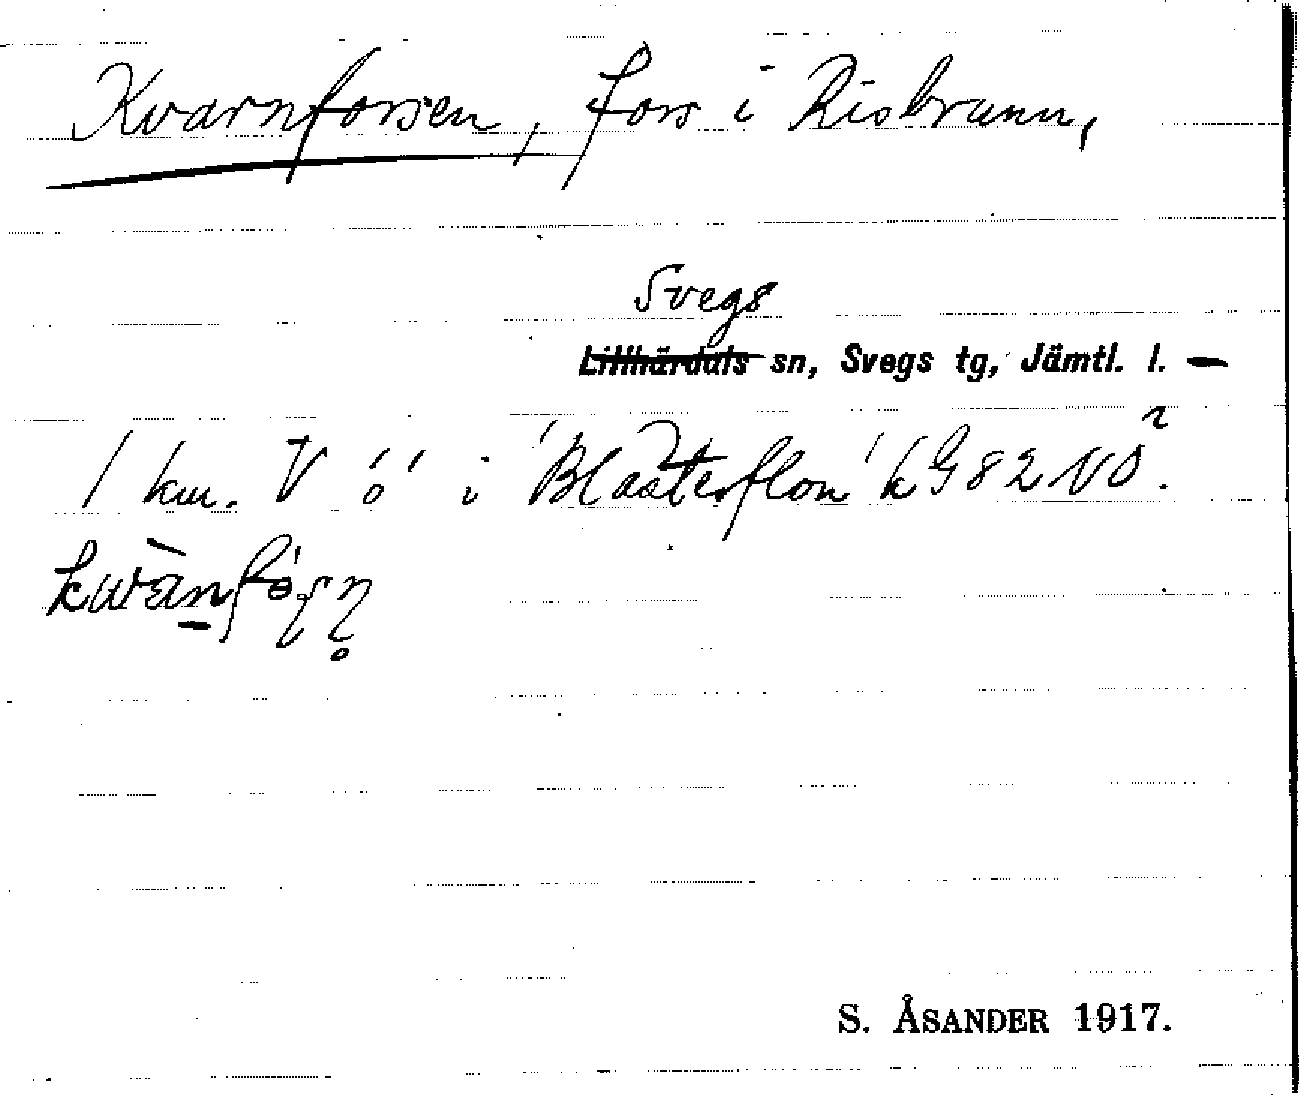 Kvarnforsen, fors i Risbrunn,
Svegs
Lillhärdals sn, Svegs tg, Jämtl. l. —
1 km. V 'o' i 'Blästerflon' k G 82 NO.
S. ÅSANDER 1917.